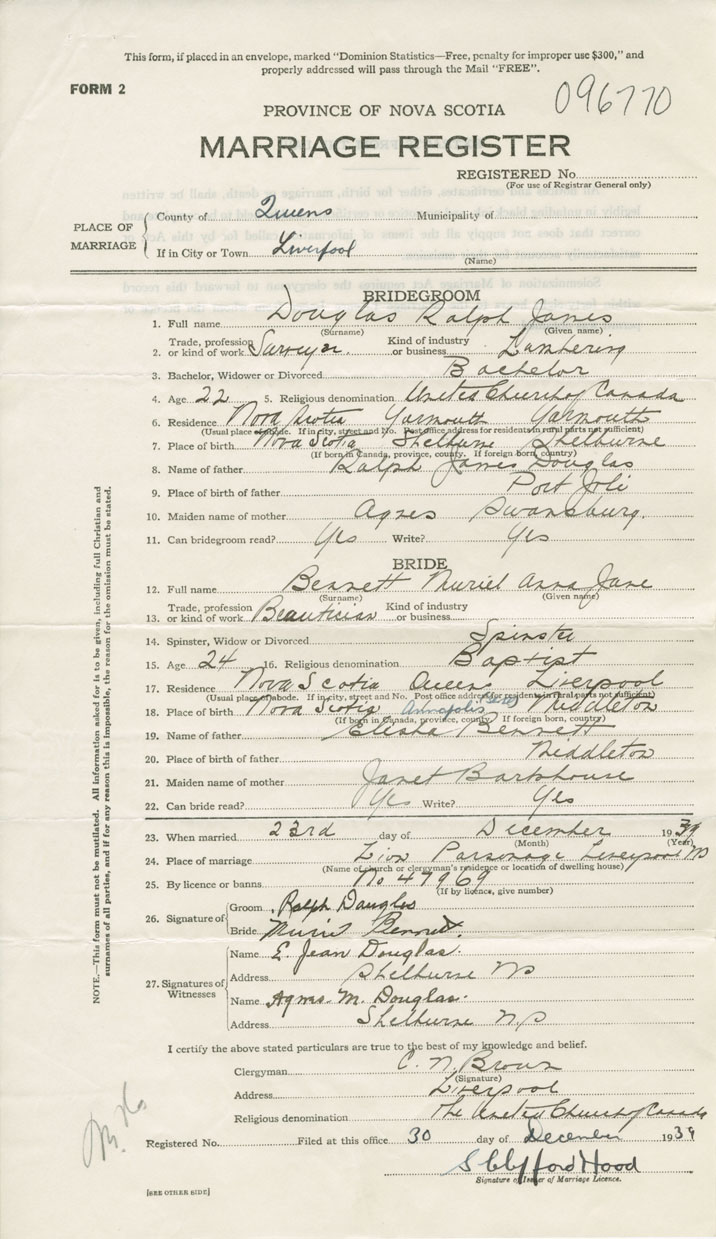 This form, if placed in an envelope, marked "Dominion Statistics—Free, penalty for improper use $300," and
properly addressed will pass through the Mail "FREE".
FORM 2
096770
PROVINCE OF NOVA SCOTIA
MARRIAGE REGISTER
REGISTERED No.
(For use of Registrar General only)
PLACE OF MARRIAGE
County of Queens Municipality of
If in City or Town Liverpool
(Name)
BRIDEGROOM
1. Full name Douglas Ralph James
(Surname) (Given name)
2. Trade, profession or kind of work Surveyor Kind of industry or business Lumbering
3. Bachelor, Widower or Divorced Bachelor
4. Age 22 5. Religious denomination United Church of Canada
6. Residence Nova Scotia Yarmouth Yarmouth
(Usual place of abode. If in city, street and No. Post office address for residents in rural parts not sufficient)
7. Place of birth Nova Scotia Shelburne Shelburne
(If born in Canada, province, county. If foreign born, country)
8. Name of father Ralph James Douglas
9. Place of birth of father Port Joli
10. Maiden name of mother Agnes Swansburg.
11. Can bridegroom read? Yes Write? Yes
BRIDE
12. Full name Bennett Muriel Anna Jane
(Surname) (Given name)
13. Trade, profession or kind of work Beautician Kind of industry or business
14. Spinster, Widow or Divorced Spinster
15. Age 24 16. Religious denomination Baptist
17. Residence Nova Scotia Queens Liverpool
(Usual place of abode. If in city, street and No. Post office address for residents in rural parts not sufficient)
18. Place of birth Nova Scotia Annapolis Middleton
(If born in Canada, province, county. If foreign born, country)
19. Name of father Elisha Bennett
20. Place of birth of father Middleton
21. Maiden name of mother Janet Barkhouse
22. Can bride read? Yes Write? Yes
23. When married 23rd day of December 1939
(Month) (Year)
24. Place of marriage Zion Parsonage Liverpool NS
(Name of church or clergyman's residence or location of dwelling house)
25. By licence or banns No 47969
(If by licence, give number)
26. Signature of
Groom Ralph Douglas
Bride Muriel Bennett.
27. Signatures of Witnesses
Name E. Jean Douglas.
Address Shelburne NS
Name Agnes M. Douglas.
Address Shelburne N.S
I certify the above stated particulars are true to the best of my knowledge and belief.
Clergyman C. N. Brown
(Signature)
Address Liverpool
Religious denomination The United Church of Canada
Registered No. Filed at this office 30 day of December 1939
S Clifford Hood
Signature of Issuer of Marriage Licence.
[SEE OTHER SIDE]
NOTE.—This form must not be mutilated. All information asked for is to be given, including full Christian and
surnames of all parties, and if for any reason this is impossible, the reason for the omission must be stated.